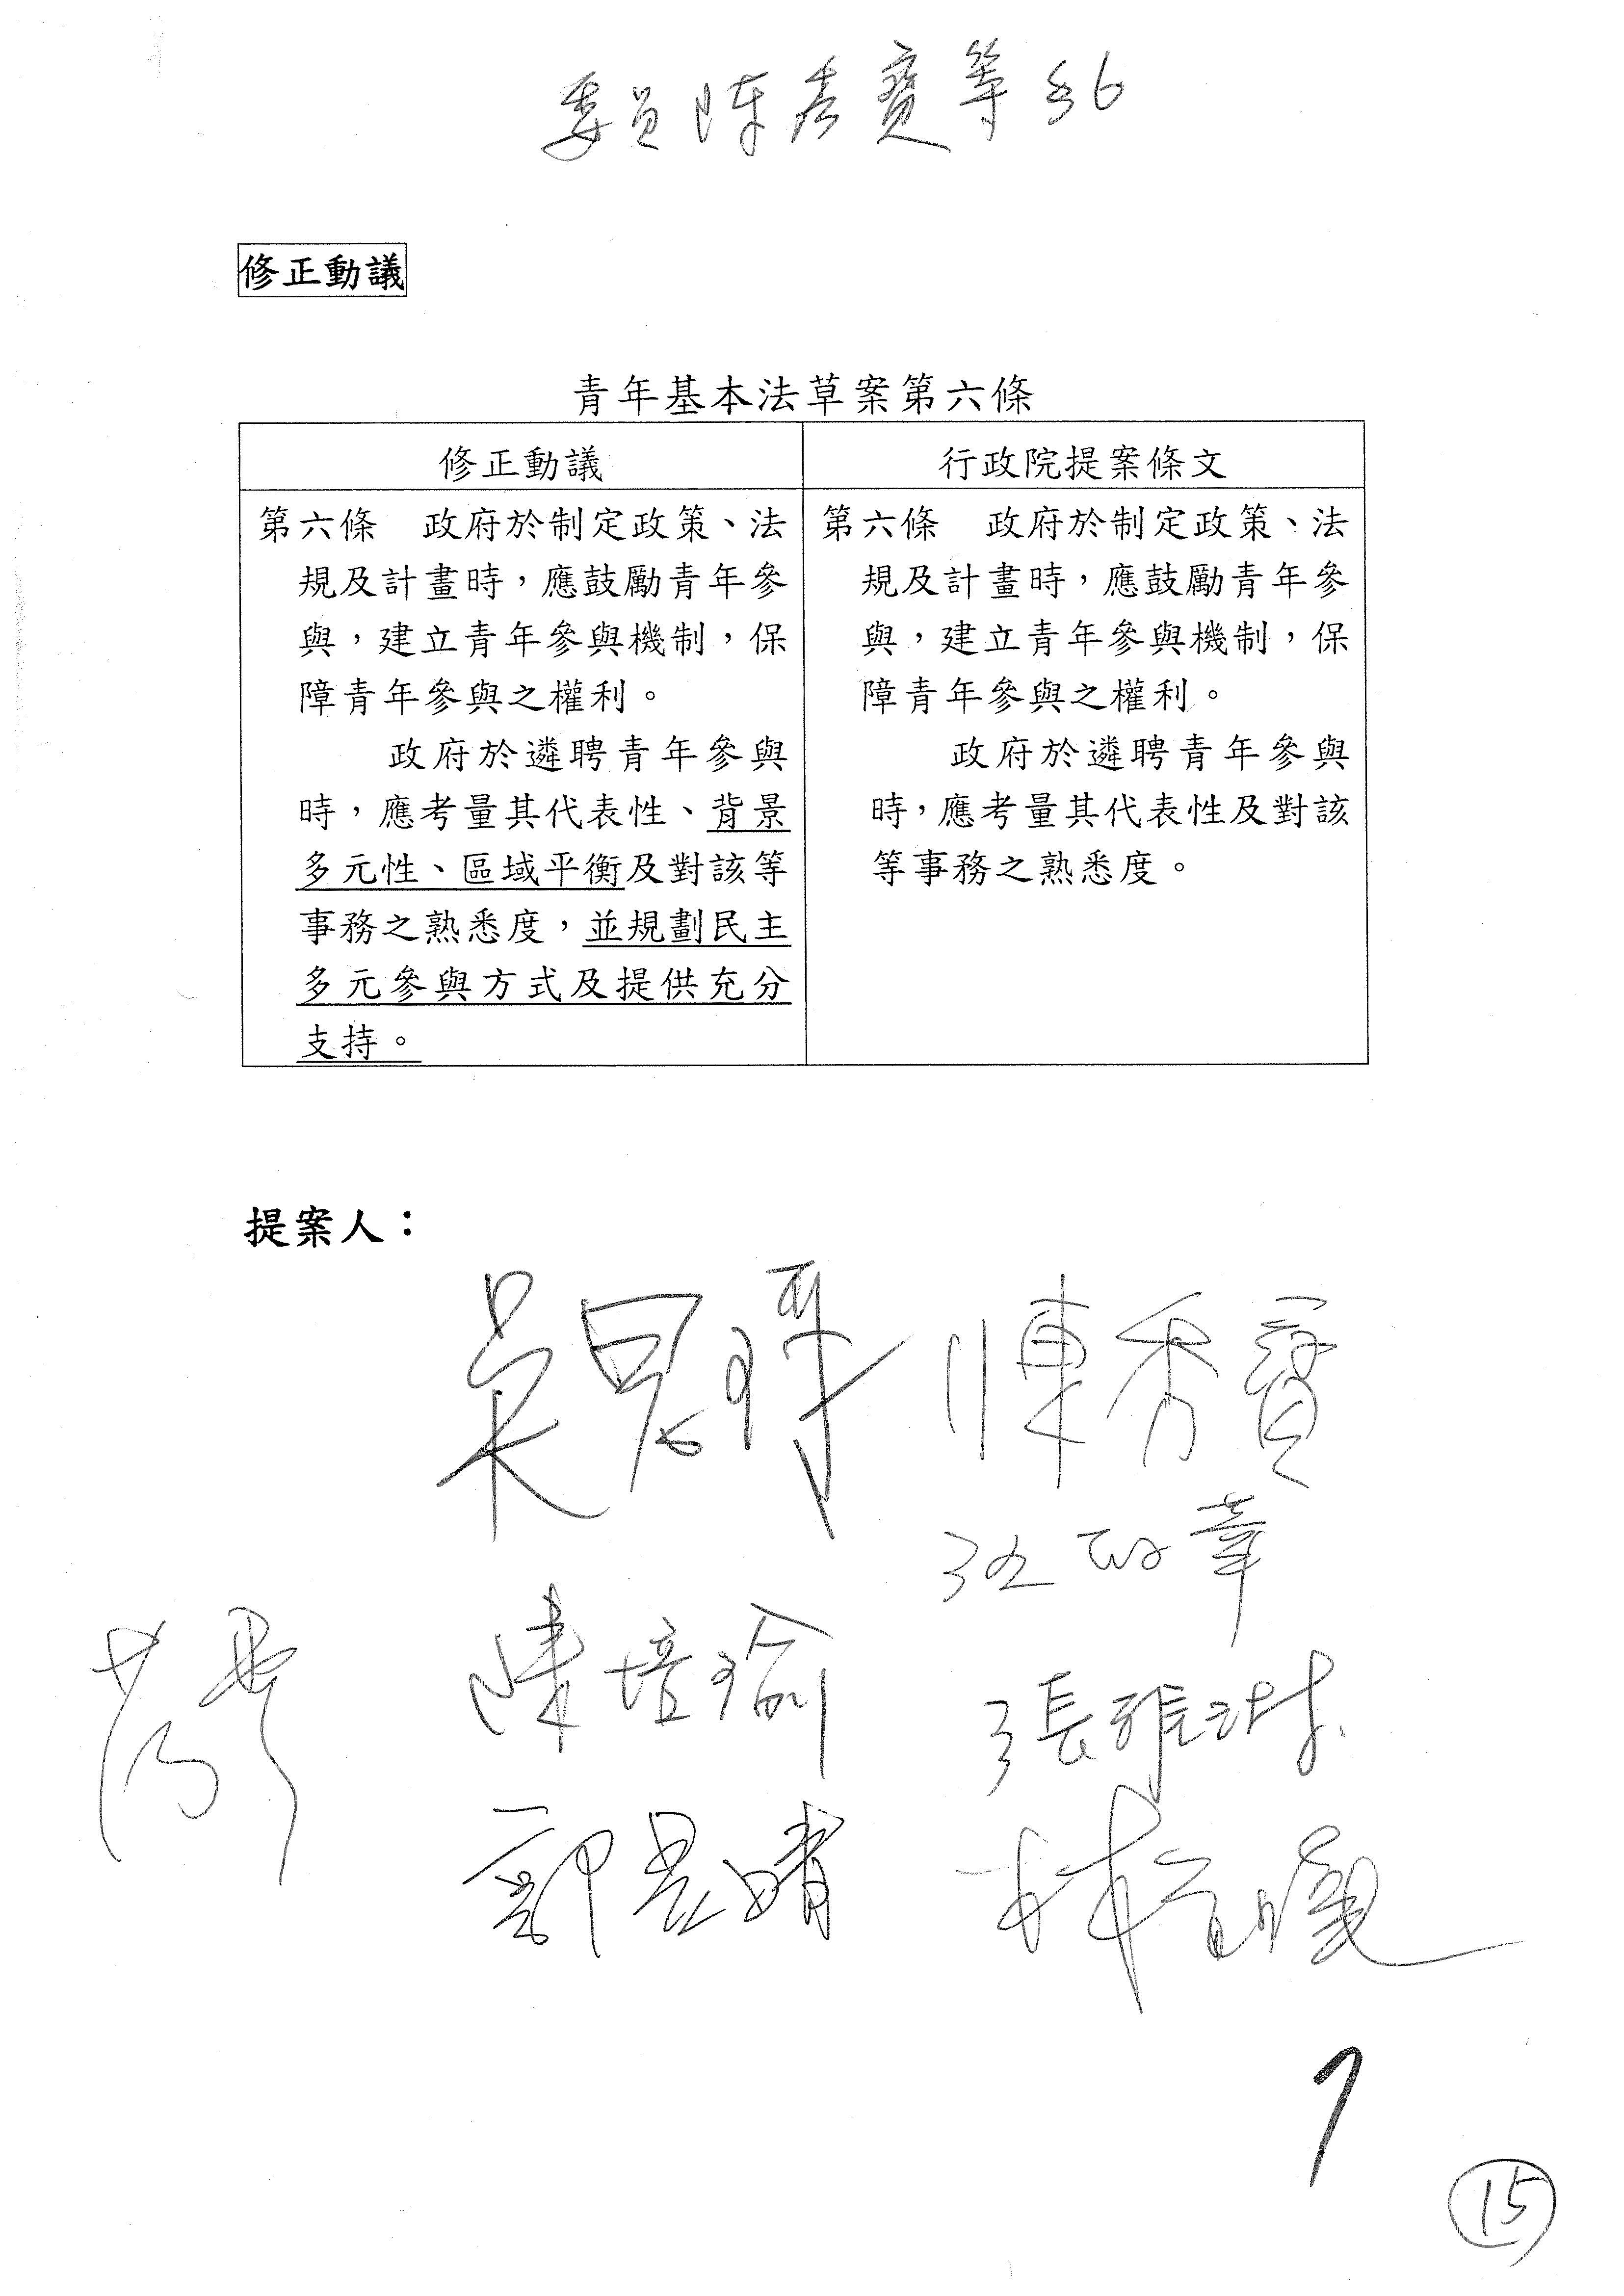 委員陳秀寶等 6
修正動議
青年基本法草案第六條
修正動議
行政院提案條文
第六條　政府於制定政策、法
規及計畫時，應鼓勵青年參
與，建立青年參與機制，保
障青年參與之權利。
政府於遴聘青年參與
時，應考量其代表性、背景
多元性、區域平衡及對該等
事務之熟悉度，並規劃民主
多元參與方式及提供充分
支持。
第六條　政府於制定政策、法
規及計畫時，應鼓勵青年參
與，建立青年參與機制，保
障青年參與之權利。
政府於遴聘青年參與
時，應考量其代表性及對該
等事務之熟悉度。
提案人：
吳思瑤 陳秀寶
陳培瑜
張雅琳
郭昱晴
林宜瑾
7
15